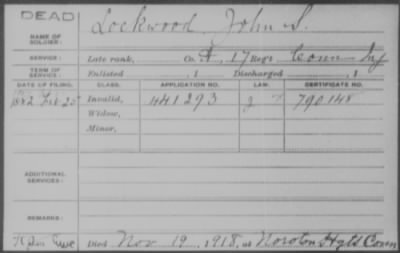 DEAD
NAME OF SOLDIER: Lockwood, John S.
SERVICE: Late rank, Co. A, 17 Reg't Conn Inf
TERM OF SERVICE: Enlisted , 1 Discharged , 1
DATE OF FILING. CLASS. APPLICATION NO. LAW. CERTIFICATE NO.
1882 Feb 25 Invalid, 441293 790148
Widow,
Minor,
ADDITIONAL SERVICES:
REMARKS:
Died Nov 19, 1918, at Noroton Hgts Conn